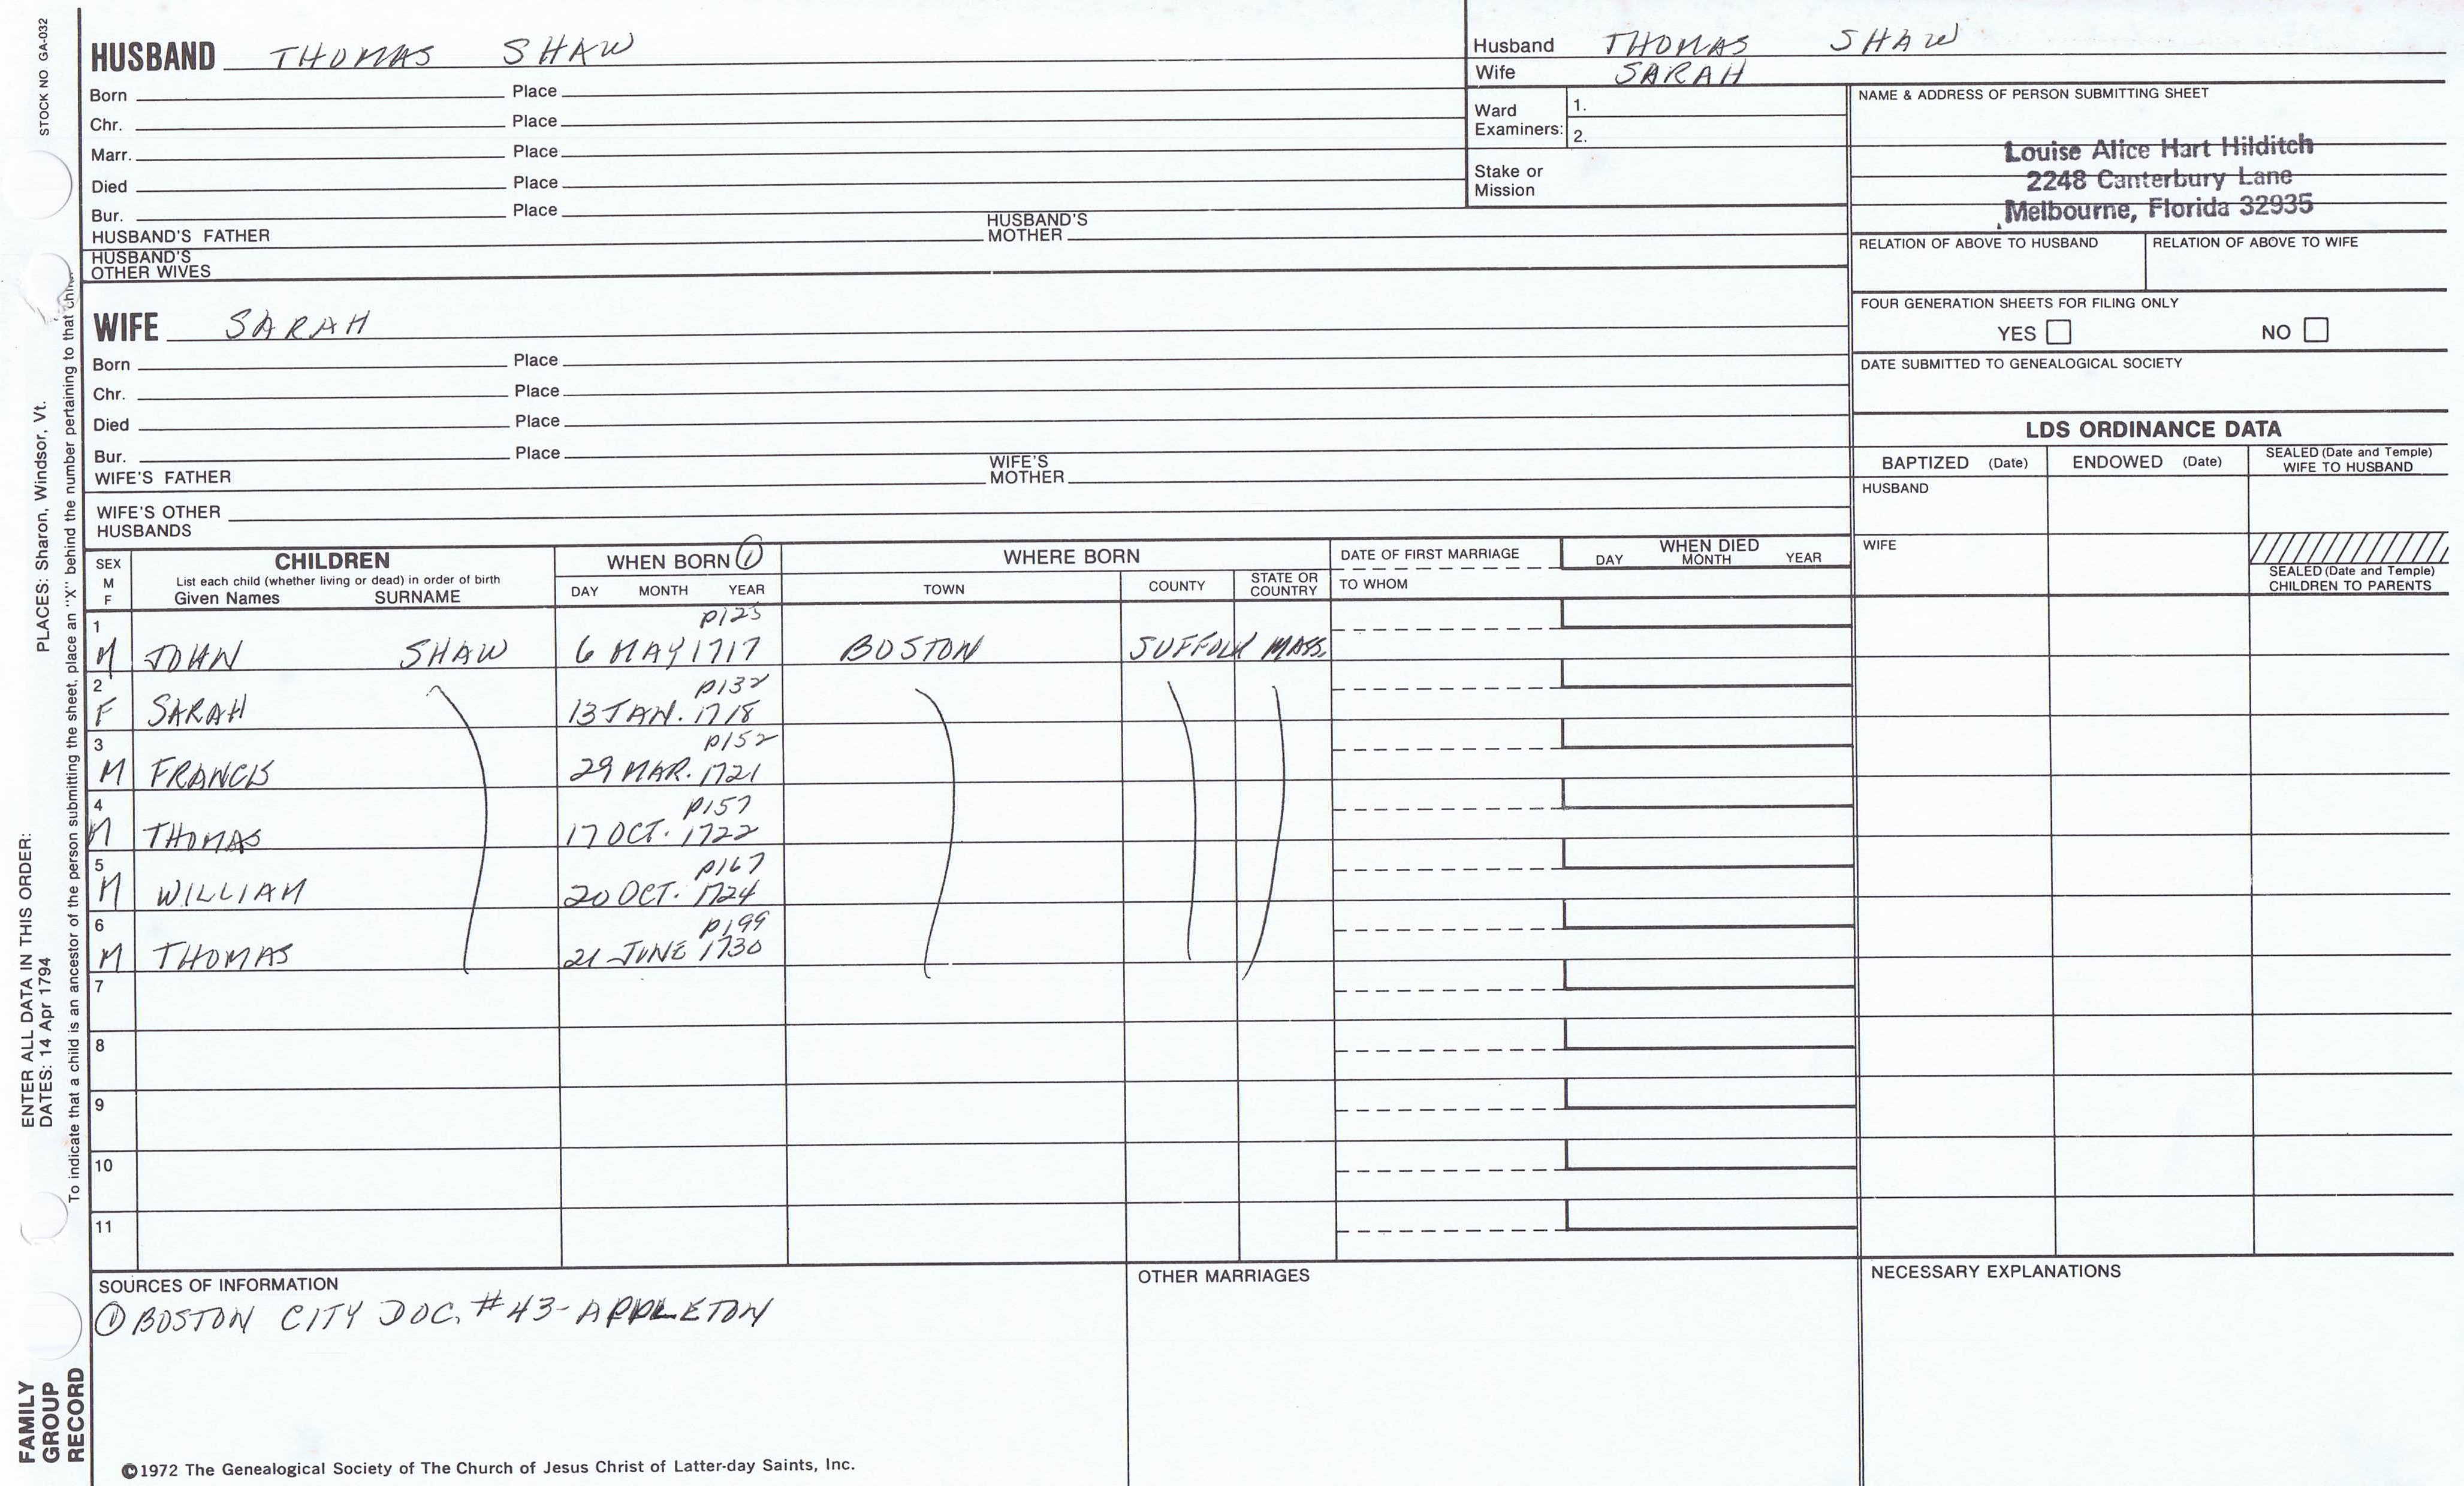 STOCK NO GA-032
HUSBAND THOMAS SHAW
Born Place
Chr. Place
Marr. Place
Died Place
Bur. Place
HUSBAND'S FATHER HUSBAND'S MOTHER
HUSBAND'S OTHER WIVES
WIFE SARAH
Born Place
Chr. Place
Died Place
Bur. Place
WIFE'S FATHER WIFE'S MOTHER
WIFE'S OTHER HUSBANDS
Husband THOMAS SHAW
Wife SARAH
Ward Examiners: 1.
2.
Stake or Mission
NAME & ADDRESS OF PERSON SUBMITTING SHEET
Louise Alice Hart Hilditch
2248 Canterbury Lane
Melbourne, Florida 32935
RELATION OF ABOVE TO HUSBAND RELATION OF ABOVE TO WIFE
FOUR GENERATION SHEETS FOR FILING ONLY
YES NO
DATE SUBMITTED TO GENEALOGICAL SOCIETY
LDS ORDINANCE DATA
BAPTIZED (Date) ENDOWED (Date) SEALED (Date and Temple) WIFE TO HUSBAND
HUSBAND
WIFE
SEALED (Date and Temple) CHILDREN TO PARENTS
SEX M F
CHILDREN
List each child (whether living or dead) in order of birth
Given Names SURNAME
WHEN BORN ①
DAY MONTH YEAR
WHERE BORN
TOWN COUNTY STATE OR COUNTRY
DATE OF FIRST MARRIAGE
TO WHOM
WHEN DIED
DAY MONTH YEAR
1 p125
M JOHN SHAW 6 MAY 1717 BOSTON SUFFOLK MASS.
2 p132
F SARAH 13 JAN. 1718
3 p152
M FRANCIS 29 MAR. 1721
4 p157
M THOMAS 17 OCT. 1722
5 p167
M WILLIAM 20 OCT. 1724
6 p199
M THOMAS 21 JUNE 1730
7
8
9
10
11
SOURCES OF INFORMATION
① BOSTON CITY DOC. #43-APPLETON
OTHER MARRIAGES
NECESSARY EXPLANATIONS
©1972 The Genealogical Society of The Church of Jesus Christ of Latter-day Saints, Inc.
FAMILY GROUP RECORD
ENTER ALL DATA IN THIS ORDER:
DATES: 14 Apr 1794 PLACES: Sharon, Windsor, Vt.
To indicate that a child is an ancestor of the person submitting the sheet, place an "X" behind the number pertaining to that